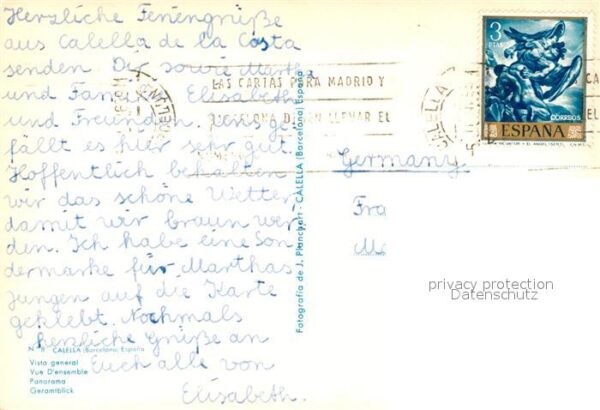 Herzliche Feriengrüße
aus Calella de la Costa
senden Dir sowie Martha
und Fam. Elisabeth
und Freunden. Uns ge-
fällt es hier sehr gut.
Hoffentlich behalten
wir das schöne Wetter,
damit wir braun wer
den. Ich habe eine Son
dermarke für Marthas
Jungen auf die Karte
geklebt. Nochmals
herzliche Grüße an
Euch alle von
Elisabeth.
CALELLA (Barcelona) España
Vista general
Vue D'ensemble
Panorama
Gesamtblick
Fotografía de J. Planchart - CALELLA (Barcelona) España
LAS CARTAS PARA MADRID Y
LLEVAR EL
CALELLA
3
PTAS
CORREOS
ESPAÑA
Germany
Fra
privacy protection
Datenschutz